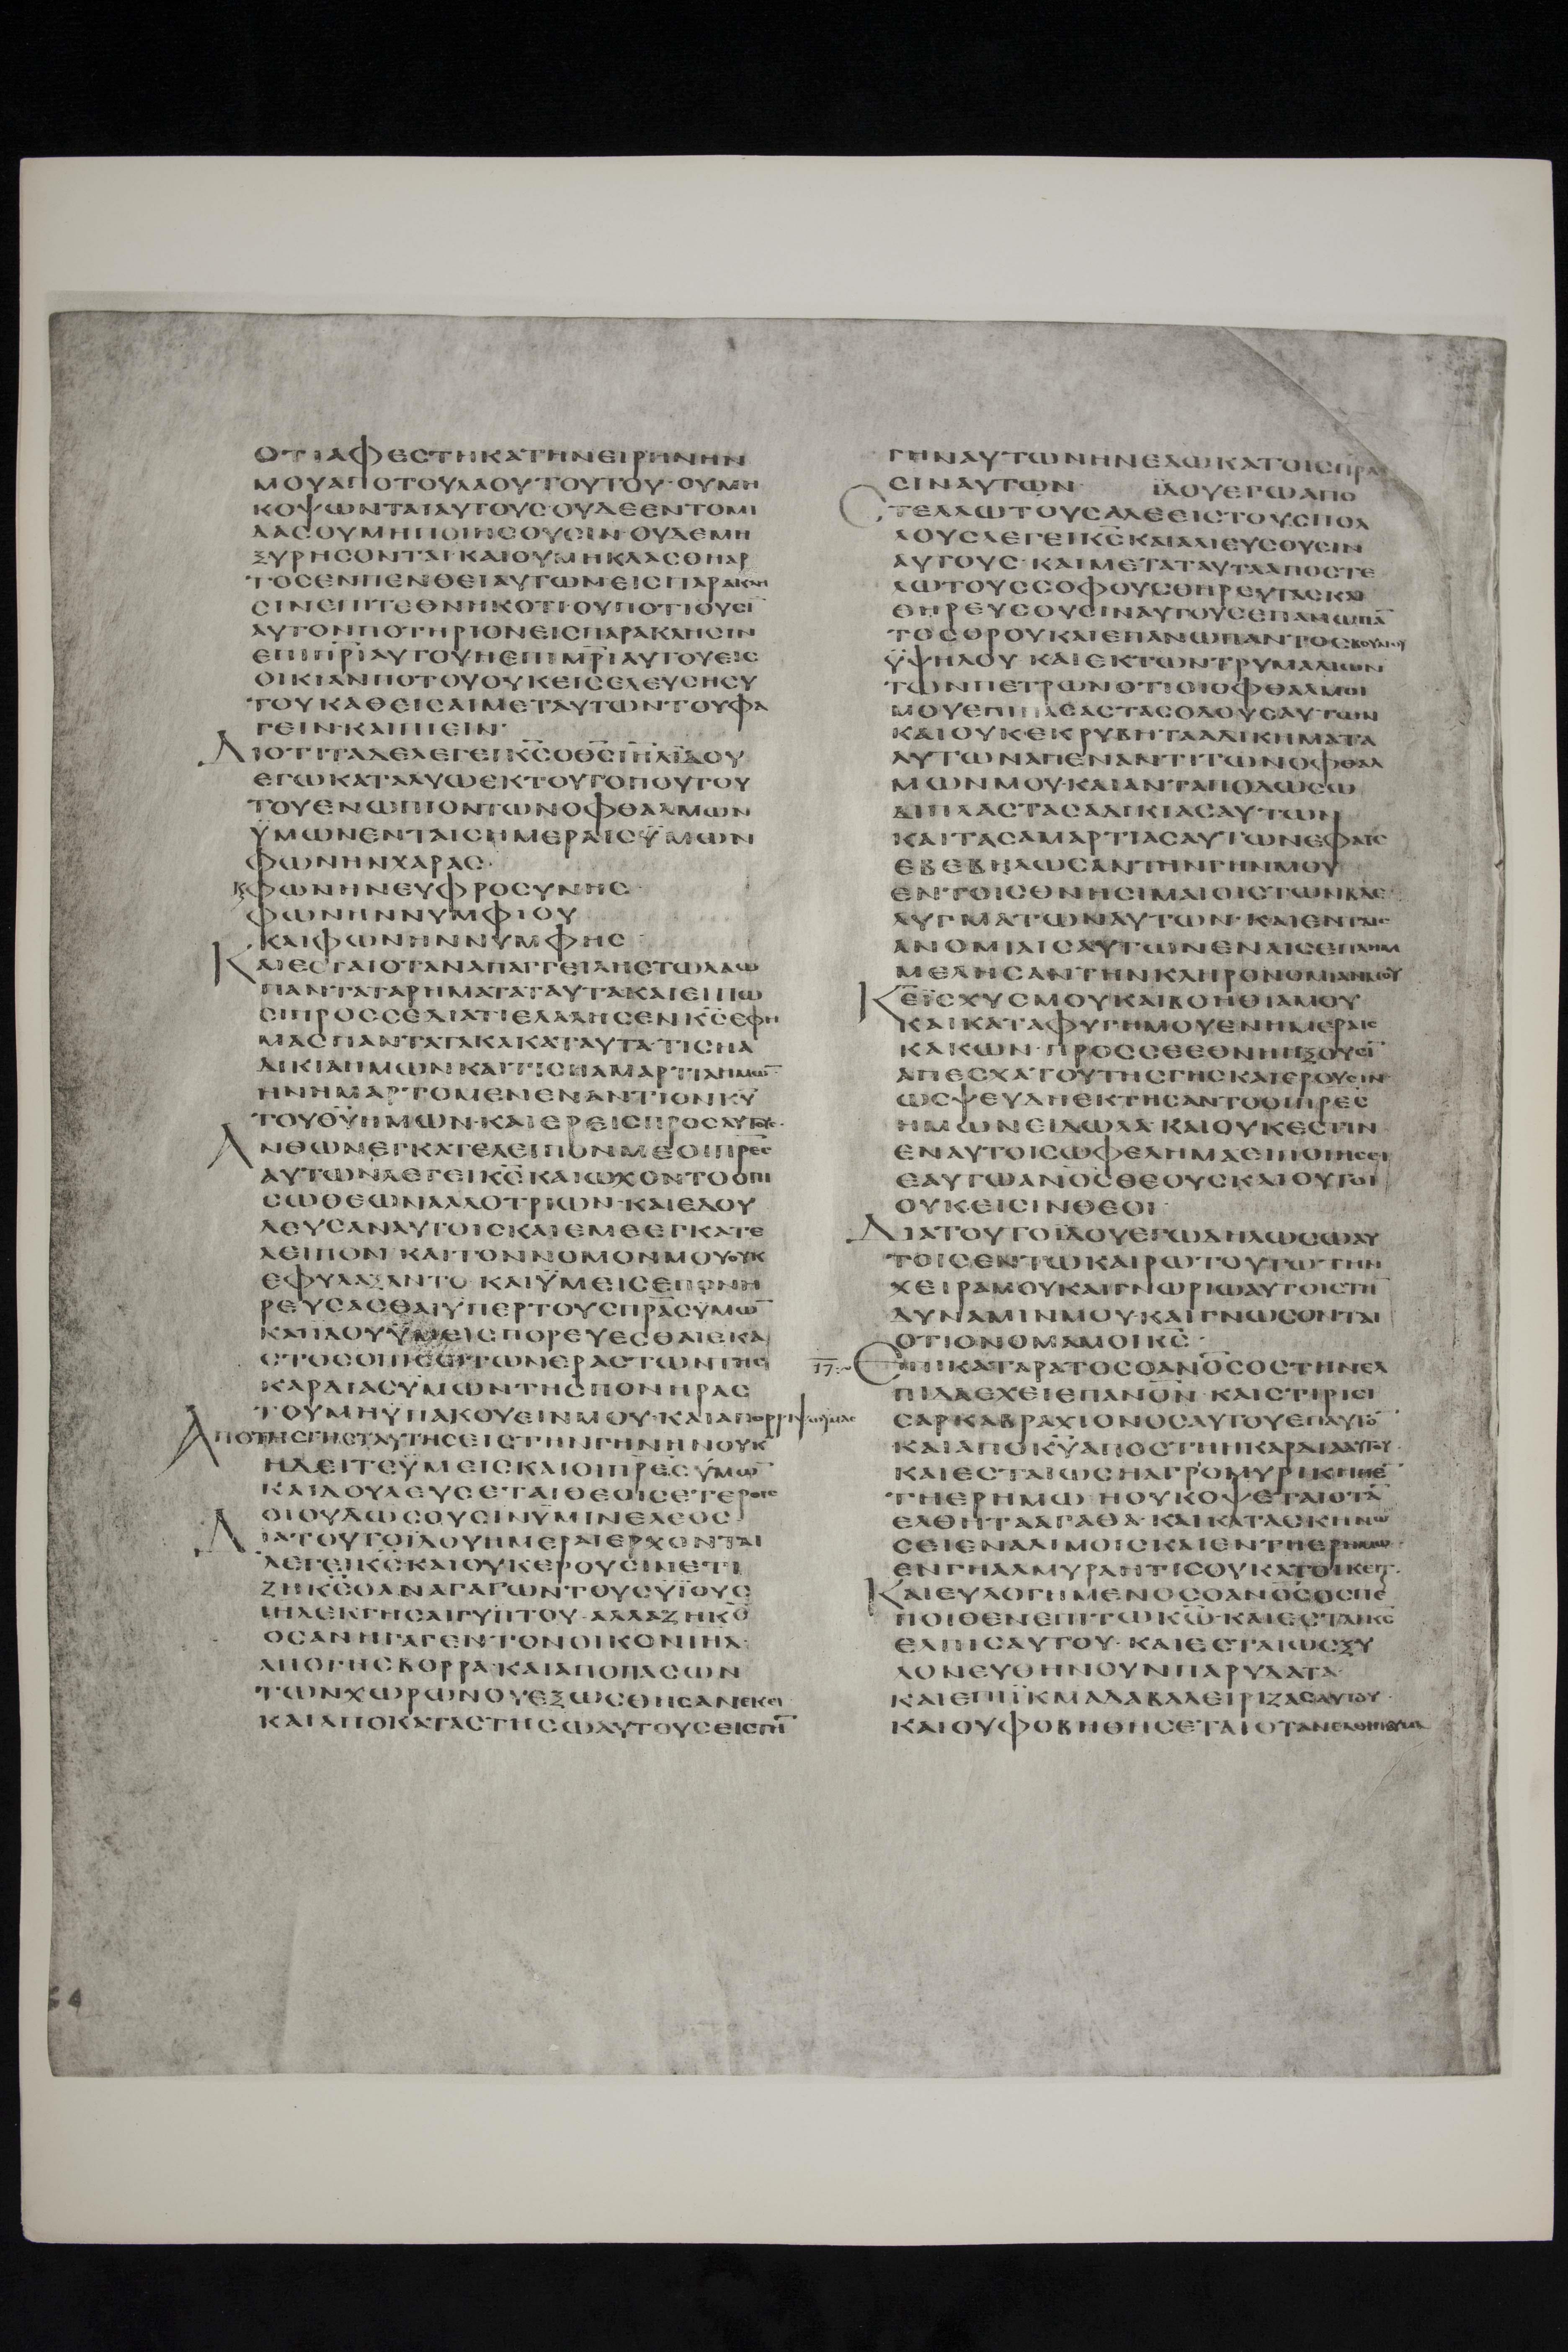 ΟΤΙΑΦΕΣΤΗΚΑΤΗΝΕΙΡΗΝΗΝ
ΜΟΥΑΠΟΤΟΥΛΑΟΥΤΟΥΤΟΥ·ΟΥΜΗ
ΚΟΨΩΝΤΑΙΑΥΤΟΥΣ·ΟΥΔΕΕΝΤΟΜΙ
ΔΑΣΟΥΜΗΠΟΙΗΣΟΥΣΙΝ·ΟΥΔΕΜΗ
ΞΥΡΗΣΟΝΤΑΙ·ΚΑΙΟΥΜΗΚΛΑΣΘΗΑΡ
ΤΟΣΕΝΠΕΝΘΕΙΑΥΤΩΝΕΙΣΠΑΡΑΚΛΗ
ΣΙΝΕΠΙΤΕΘΝΗΚΟΤΙ·ΟΥΠΟΤΙΟΥΣΙ̅
ΑΥΤΟΝΠΟΤΗΡΙΟΝΕΙΣΠΑΡΑΚΛΗΣΙΝ
ΕΠΙΠ̅Ρ̅Ι̅ΑΥΤΟΥΗΕΠΙΜ̅Ρ̅Ι̅ΑΥΤΟΥΕΙΣ
ΟΙΚΙΑΝΠΟΤΟΥΟΥΚΕΙΣΕΛΕΥΣΗΣΥ
ΤΟΥΚΑΘΕΙΣΑΙΜΕΤΑΥΤΩΝΤΟΥΦΑ
ΓΕΙΝ·ΚΑΙΠΙΕΙΝ·
ΔΙΟΤΙΤΑΔΕΛΕΓΕΙΚ̅Σ̅ΟΘ̅Σ̅Ι̅Η̅Λ̅ΙΔΟΥ
ΕΓΩΚΑΤΑΛΥΩΕΚΤΟΥΤΟΠΟΥΤΟΥ
ΤΟΥΕΝΩΠΙΟΝΤΩΝΟΦΘΑΛΜΩΝ
ΫΜΩΝΕΝΤΑΙΣΗΜΕΡΑΙΣΫΜΩΝ
ΦΩΝΗΝΧΑΡΑΣ·
ΚΦΩΝΗΝΕΥΦΡΟΣΥΝΗΣ·
ΦΩΝΗΝΝΥΜΦΙΟΥ
ΚΑΙΦΩΝΗΝΝΥΜΦΗΣ·
ΚΑΙΕΣΤΑΙΟΤΑΝΑΠΑΓΓΕΙΛΗΣΤΩΛΑΩ
ΠΑΝΤΑΤΑΡΗΜΑΤΑΤΑΥΤΑΚΑΙΕΙΠΩ
ΣΙΠΡΟΣΣΕΔΙΑΤΙΕΛΑΛΗΣΕΝΚ̅Σ̅ΕΦΗ
ΜΑΣΠΑΝΤΑΤΑΚΑΚΑΤΑΥΤΑ·ΤΙΣΗΑ
ΔΙΚΙΑΗΜΩΝΚΑΙΤΙΣΗΑΜΑΡΤΙΑΗΜΩ̅
ΗΝΗΜΑΡΤΟΜΕΝΕΝΑΝΤΙΟΝΚ̅Υ̅
ΤΟΥΘ̅Υ̅ΗΜΩΝ·ΚΑΙΕΡΕΙΣΠΡΟΣΑΥΤΟΥΣ·
ΑΝΘΩΝΕΓΚΑΤΕΛΕΙΠΟΝΜΕΟΙΠ̅Ρ̅Ε̅Σ̅
ΑΥΤΩΝΛΕΓΕΙΚ̅Σ̅ΚΑΙΩΧΟΝΤΟΟΠΙ
ΣΩΘΕΩΝΑΛΛΟΤΡΙΩΝ·ΚΑΙΕΔΟΥ
ΛΕΥΣΑΝΑΥΤΟΙΣΚΑΙΕΜΕΕΓΚΑΤΕ
ΛΕΙΠΟΝ·ΚΑΙΤΟΝΝΟΜΟΝΜΟΥΟΥΚ
ΕΦΥΛΑΞΑΝΤΟ·ΚΑΙΫΜΕΙΣΕΠΟΝΗ
ΡΕΥΣΑΣΘΑΙΫΠΕΡΤΟΥΣΠ̅Ρ̅Α̅Σ̅ΫΜΩ̅
ΚΑΙΙΔΟΥΫΜΕΙΣΠΟΡΕΥΕΣΘΑΙΕΚΑ
ΣΤΟΣΟΠΙΣΩΤΩΝΕΡΑΣΤΩΝΤΗΣ
ΚΑΡΔΙΑΣΫΜΩΝΤΗΣΠΟΝΗΡΑΣ
ΤΟΥΜΗΫΠΑΚΟΥΕΙΝΜΟΥ·ΚΑΙΑΠΟΡΡΙΨΩΫΜΑΣ
ΑΠΟΤΗΣΓΗΣΤΑΥΤΗΣΕΙΣΤΗΝΓΗΝΗΝΟΥΚ
ΗΔΕΙΤΕΫΜΕΙΣΚΑΙΟΙΠ̅Ρ̅Ε̅Σ̅ΫΜΩ̅
ΚΑΙΔΟΥΛΕΥΣΕΤΑΙΘΕΟΙΣΕΤΕΡΟΙΣ
ΟΙΟΥΔΩΣΟΥΣΙΝΫΜΙΝΕΛΕΟΣ
ΔΙΑΤΟΥΤΟΪΔΟΥΗΜΕΡΑΙΕΡΧΟΝΤΑΙ
ΛΕΓΕΙΚ̅Σ̅ΚΑΙΟΥΚΕΡΟΥΣΙΝΕΤΙ
ΖΗΚ̅Σ̅ΟΑΝΑΓΑΓΩΝΤΟΥΣΥΪΟΥΣ
Ι̅Η̅Λ̅ΕΚΓΗΣΑΙΓΥΠΤΟΥ·ΑΛΛΑΖΗΚ̅Σ̅
ΟΣΑΝΗΓΑΓΕΝΤΟΝΟΙΚΟΝΙ̅Η̅Λ̅·
ΑΠΟΓΗΣΒΟΡΡΑ·ΚΑΙΑΠΟΠΑΣΩΝ
ΤΩΝΧΩΡΩΝΟΥΕΞΩΣΘΗΣΑΝΕΚΕΙ
ΚΑΙΑΠΟΚΑΤΑΣΤΗΣΩΑΥΤΟΥΣΕΙΣΤΗ̅
ΓΗΝΑΥΤΩΝΗΝΕΔΩΚΑΤΟΙΣΠΡΑ
ΣΙΝΑΥΤΩΝ· ΪΔΟΥΕΓΩΑΠΟ
ΣΤΕΛΛΩΤΟΥΣΑΛΕΕΙΣΤΟΥΣΠΟΛ
ΛΟΥΣΛΕΓΕΙΚ̅Σ̅ΚΑΙΑΛΙΕΥΣΟΥΣΙΝ
ΑΥΤΟΥΣ·ΚΑΙΜΕΤΑΤΑΥΤΑΑΠΟΣΤΕ
ΛΩΤΟΥΣΣΟΦΟΥΣΘΗΡΕΥΤΑΣΚΑΙ
ΘΗΡΕΥΣΟΥΣΙΝΑΥΤΟΥΣΕΠΑΝΩΠΑ̅
ΤΟΣΟΡΟΥΚΑΙΕΠΑΝΩΠΑΝΤΟΣΒΟΥΝΟΥ
ΫΨΗΛΟΥ·ΚΑΙΕΚΤΩΝΤΡΥΜΑΛΙΩΝ
ΤΩΝΠΕΤΡΩΝΟΤΙΟΙΟΦΘΑΛΜΟΙ
ΜΟΥΕΠΙΠΑΣΑΣΤΑΣΟΔΟΥΣΑΥΤΩΝ
ΚΑΙΟΥΚΕΚΡΥΒΗΤΑΑΔΙΚΗΜΑΤΑ
ΑΥΤΩΝΑΠΕΝΑΝΤΙΤΩΝΟΦΘΑΛ
ΜΩΝΜΟΥ·ΚΑΙΑΝΤΑΠΟΔΩΣΩ
ΔΙΠΛΑΣΤΑΣΑΔΙΚΙΑΣΑΥΤΩΝ
ΚΑΙΤΑΣΑΜΑΡΤΙΑΣΑΥΤΩΝΕΦΑΙΣ
ΕΒΕΒΗΛΩΣΑΝΤΗΝΓΗΝΜΟΥ
ΕΝΤΟΙΣΘΝΗΣΙΜΑΙΟΙΣΤΩΝΒΔΕ
ΛΥΓΜΑΤΩΝΑΥΤΩΝ·ΚΑΙΕΝΤΑΙΣ
ΑΝΟΜΙΑΙΣΑΥΤΩΝΕΝΑΙΣΕΠΛΗΜ
ΜΕΛΗΣΑΝΤΗΝΚΛΗΡΟΝΟΜΙΑΝΜΟΥ
ΚΕΪΣΧΥΣΜΟΥΚΑΙΒΟΗΘΙΑΜΟΥ
ΚΑΙΚΑΤΑΦΥΓΗΜΟΥΕΝΗΜΕΡΑΙΣ
ΚΑΚΩΝ·ΠΡΟΣΣΕΕΘΝΗΗΞΟΥΣΙ̅
ΑΠΕΣΧΑΤΟΥΤΗΣΓΗΣΚΑΙΕΡΟΥΣΙΝ
ΩΣΨΕΥΔΗΕΚΤΗΣΑΝΤΟΟΙΠ̅Ρ̅Ε̅Σ̅
ΗΜΩΝΕΙΔΩΛΑ·ΚΑΙΟΥΚΕΣΤΙΝ
ΕΝΑΥΤΟΙΣΩΦΕΛΗΜΑΕΙΠΟΙΗΣΕΙ
ΕΑΥΤΩΑΝ̅Ο̅Σ̅ΘΕΟΥΣΚΑΙΟΥΤΟΙ
ΟΥΚΕΙΣΙΝΘΕΟΙ·
ΔΙΑΤΟΥΤΟΪΔΟΥΕΓΩΔΗΛΩΣΩΑΥ
ΤΟΙΣΕΝΤΩΚΑΙΡΩΤΟΥΤΩ·ΤΗΝ
ΧΕΙΡΑΜΟΥΚΑΙΓΝΩΡΙΩΑΥΤΟΙΣΤΗ̅
ΔΥΝΑΜΙΝΜΟΥ·ΚΑΙΓΝΩΣΟΝΤΑΙ
ΟΤΙΟΝΟΜΑΜΟΙΚ̅Σ̅·
17:~ ΕΠΙΚΑΤΑΡΑΤΟΣΟΑΝ̅Ο̅Σ̅ΟΣΤΗΝΕΛ
ΠΙΔΑΕΧΕΙΕΠΑΝ̅Ο̅Ν̅·ΚΑΙΣΤΙΡΙΣΙ
ΣΑΡΚΑΒΡΑΧΙΟΝΟΣΑΥΤΟΥΕΠΑΥΤΟ̅
ΚΑΙΑΠΟΚ̅Υ̅ΑΠΟΣΤΗΗΚΑΡΔΙΑΑΥΤΟΥ·
ΚΑΙΕΣΤΑΙΩΣΗΑΓΡΟΜΥΡΙΚΗΗΕ̅
ΤΗΕΡΗΜΩ·ΗΟΥΚΟΨΕΤΑΙΟΤΑ̅
ΕΛΘΗΤΑΑΓΑΘΑ·ΚΑΙΚΑΤΑΣΚΗΝΩ
ΣΕΙΕΝΑΛΙΜΟΙΣΚΑΙΕΝΤΗΕΡΗΜΩ·
ΕΝΓΗΑΛΜΥΡΑΗΤΙΣΟΥΚΑΤΟΙΚΕΙΤ·
ΚΑΙΕΥΛΟΓΗΜΕΝΟΣΟΑΝ̅Ο̅Σ̅ΟΣΠΕ
ΠΟΙΘΕΝΕΠΙΤΩΚ̅Ω̅·ΚΑΙΕΣΤΑΙΚ̅Σ̅
ΕΛΠΙΣΑΥΤΟΥ·ΚΑΙΕΣΤΑΙΩΣΞΥ
ΛΟΝΕΥΘΗΝΟΥΝΠΑΡΥΔΑΤΑ·
ΚΑΙΕΠΙΪΚΜΑΔΑΒΑΛΕΙΡΙΖΑΣΑΥΤΟΥ·
ΚΑΙΟΥΦΟΒΗΘΗΣΕΤΑΙΟΤΑΝΕΛΘΗΚΑΥΜΑ